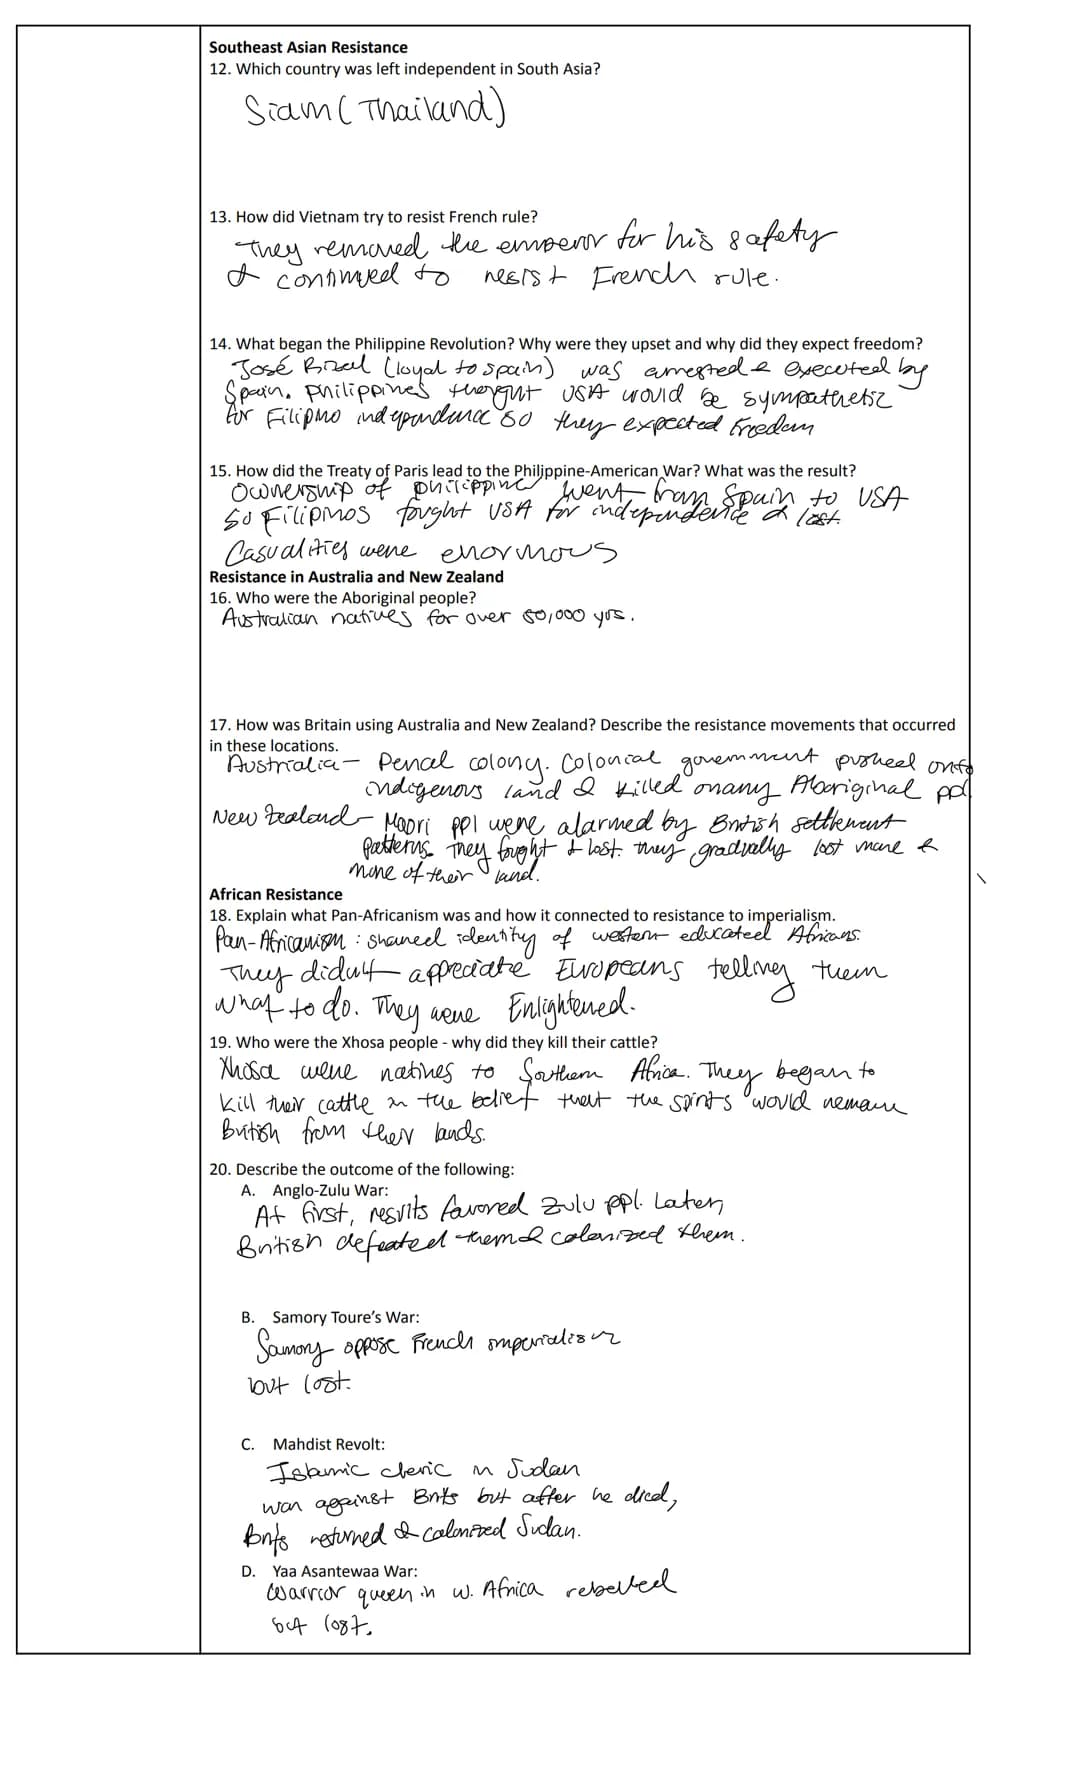 Southeast Asian Resistance
12. Which country was left independent in South Asia?
Siam (Thailand)
13. How did Vietnam try to resist French rule?
They removed the emperor for his safety
& continued to resist French rule.
14. What began the Philippine Revolution? Why were they upset and why did they expect freedom?
José Rizal (loyal to Spain) was arrested & executed by
Spain. Philippines thought USA would be sympathetic
for Filipino independence so they expected freedom
15. How did the Treaty of Paris lead to the Philippine-American War? What was the result?
Ownership of Philippine went from Spain to USA
So Filipinos fought USA for independence & lost.
Casualities were enormous
Resistance in Australia and New Zealand
16. Who were the Aboriginal people?
Australian natives for over 50,000 yrs.
17. How was Britain using Australia and New Zealand? Describe the resistance movements that occurred
in these locations.
Australia - Penal colony. Colonial government pushed onto
indigenous land & killed many Aboriginal ppl
New Zealand - Maori ppl were alarmed by British settlement
patterns. They fought & lost. they gradually lost more &
more of their land.
African Resistance
18. Explain what Pan-Africanism was and how it connected to resistance to imperialism.
Pan-Africanism : shared identity of western educated Africans.
They didn't appreciate Europeans telling them
what to do. They were Enlightened.
19. Who were the Xhosa people - why did they kill their cattle?
Xhosa were natives to Southern Africa. They began to
kill their cattle in the belief that the spirits would remove
British from their lands.
20. Describe the outcome of the following:
A. Anglo-Zulu War:
At first, results favored Zulu ppl. Later,
British defeated them & colonized them.
B. Samory Toure's War:
Samory oppose French imperialism
but lost.
C. Mahdist Revolt:
Islamic cleric in Sudan
won against Brits but after he died,
Brits returned & colonized Sudan.
D. Yaa Asantewaa War:
Warrior queen in W. Africa rebelled
but lost.